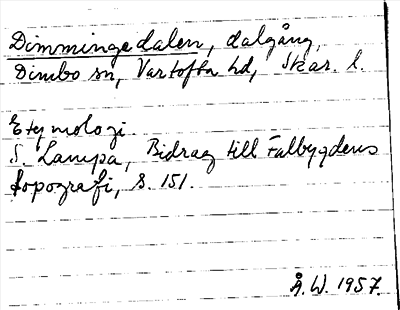 Dimmingedalen, dalgång,
Dimbo sn, Vartofta hd, Skar. l.
Etymologi.
S. Lampa, Bidrag till Falbygdens
topografi, s. 151.
Å.W. 1957.